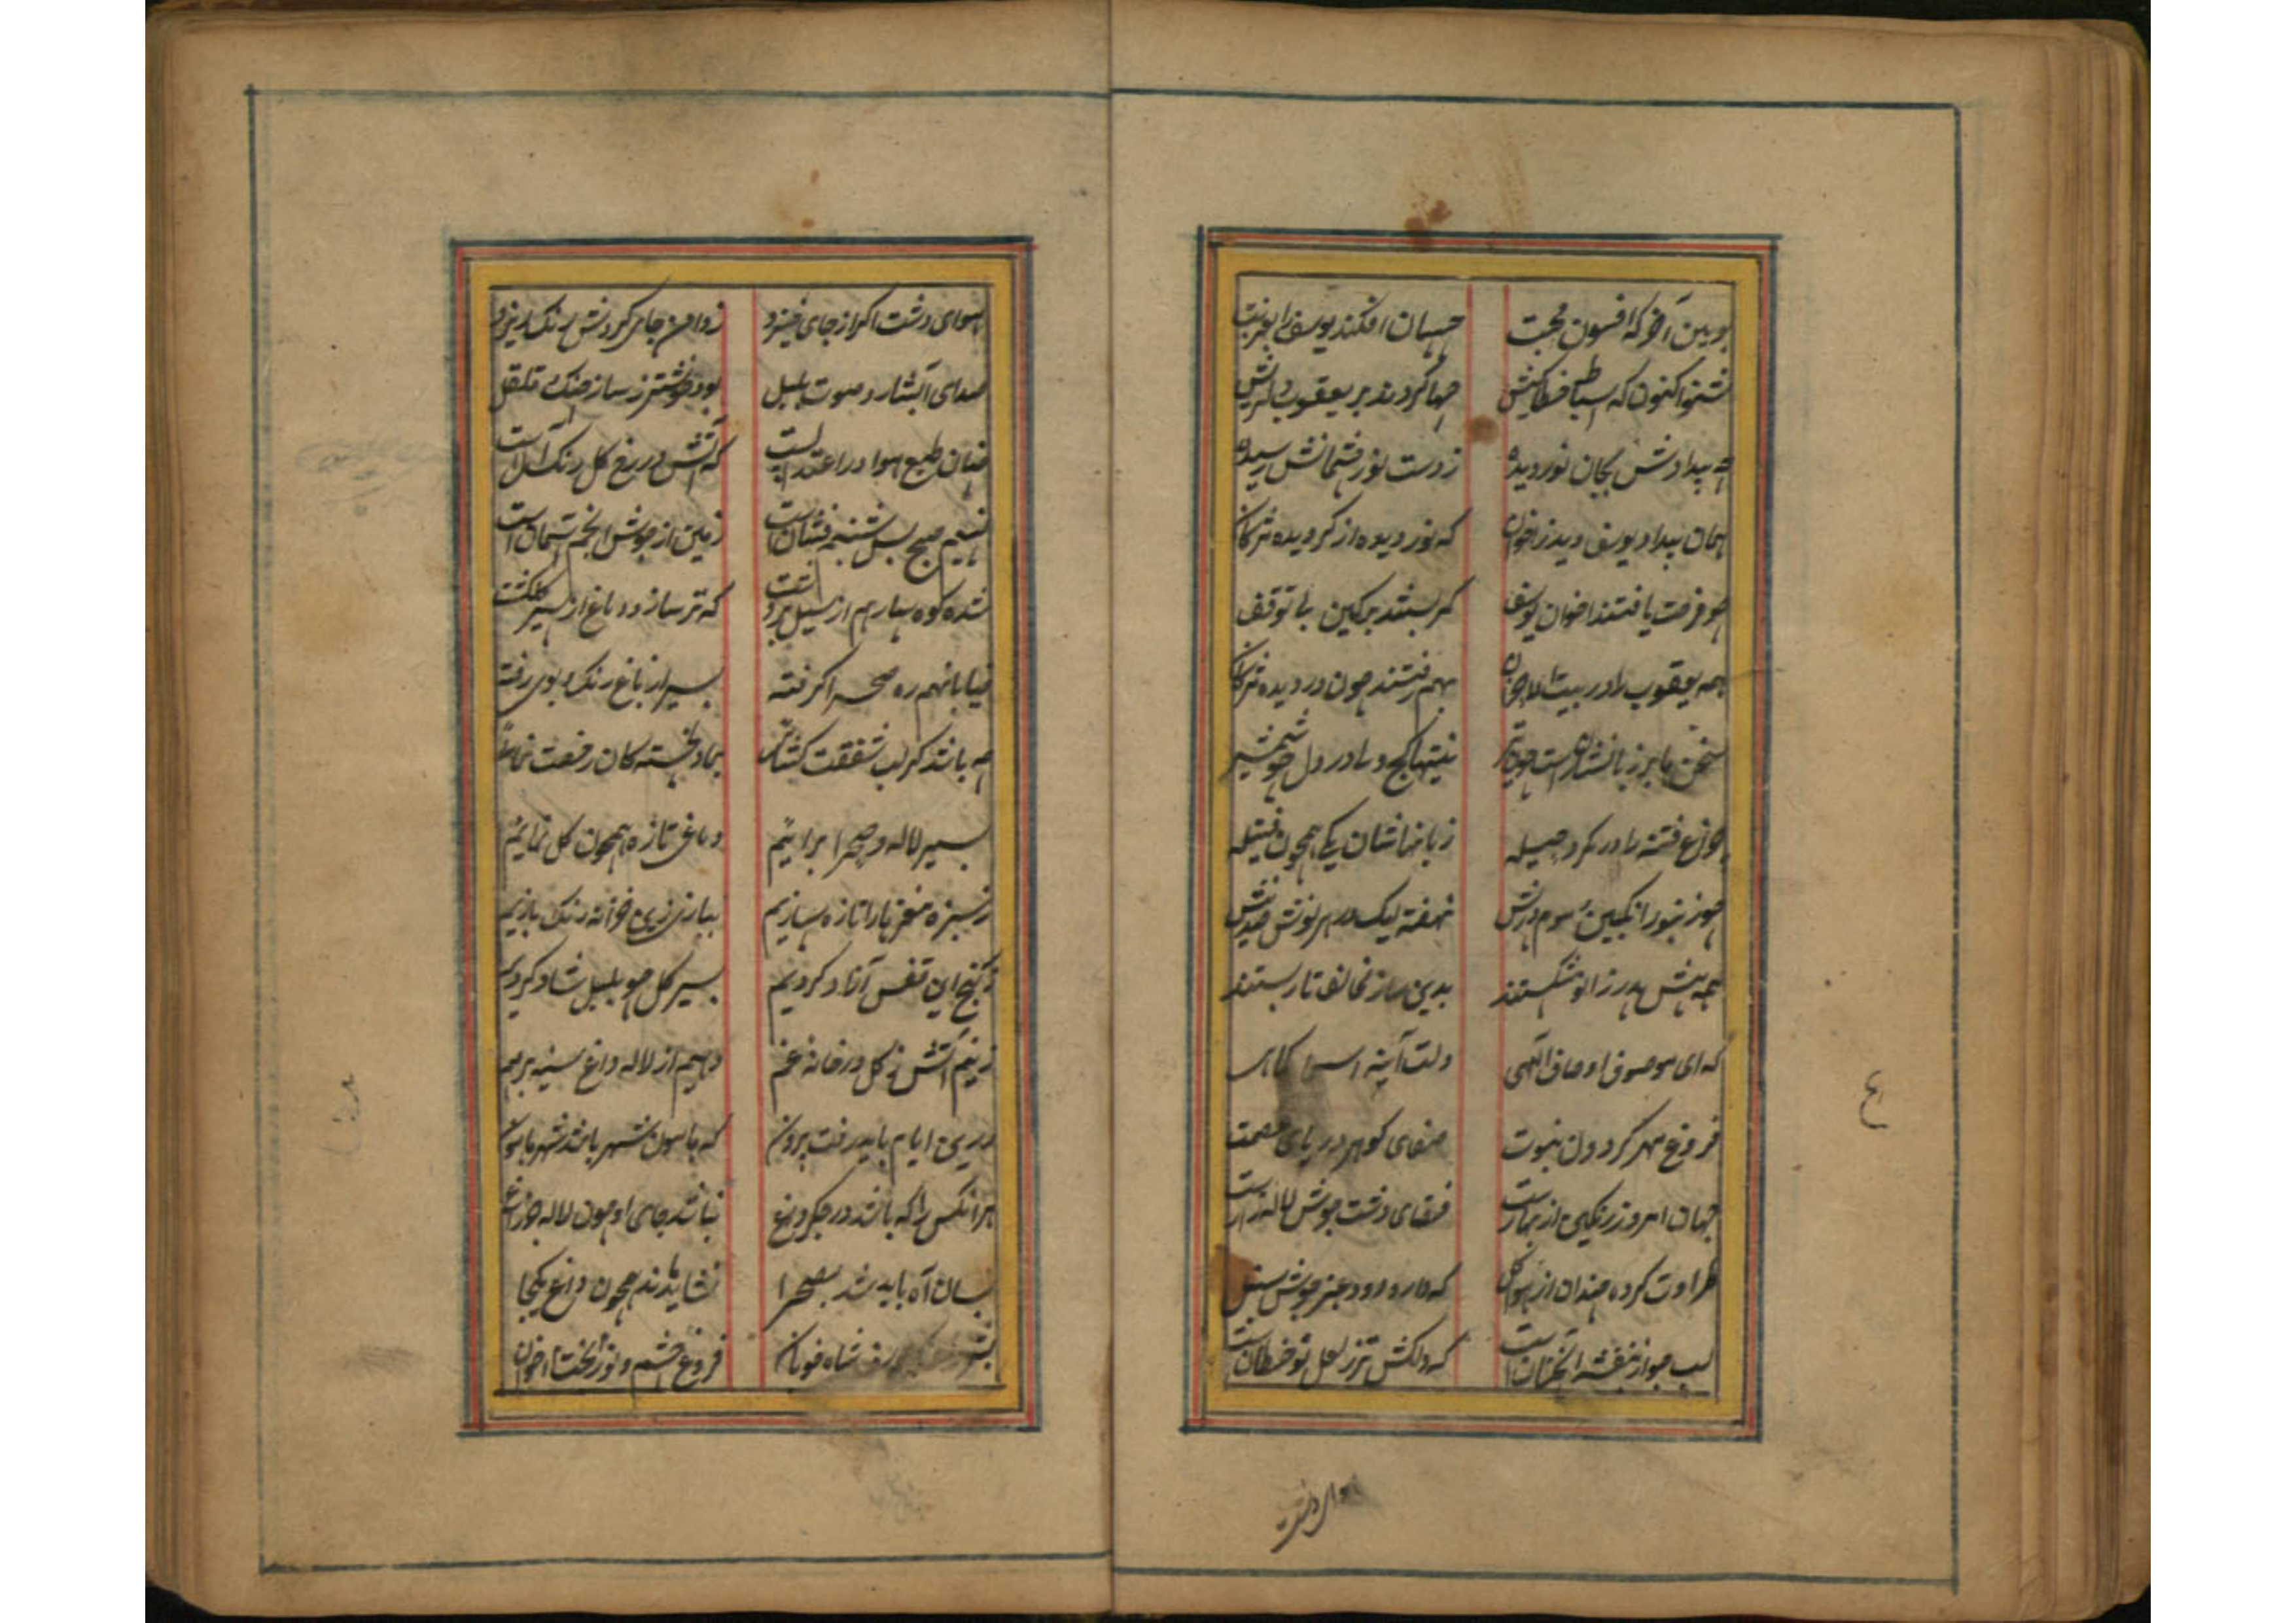 چو بین آخر که افسون محبت
چسان افکند یوسف را بغربت
شنو اکنون که اسباط خطاکیش
چها کردند بر یعقوب دلریش
چه بیدادش بجان نور دیده
ز دست نور چشمانش رسیده
همان بیداد یوسف دید ز اخوان
که نور دیده از کردیده مژکان
چو فرصت یافتند اخوان یوسف
کمر بستند بر کین بی توقف
همه یعقوب را در بیت الاحزان
بهم رفتند چون در دیده مژکان
سخن ها بر زبانشان راست چون تیر
نیتها کج ولی در دل چو شمشیر
چراغ فتنه را در کرد حیله
زبانهاشان یکی همچون فتیله
چو زنبور انگبین سوم درش
نهفته لیک در هر نوش صد نیش
همه پیش پدر زانو شکستند
بدین ساز مخالف تار بستند
که ای موصوف اوصاف الهی
دلت آینه اسرار کاهی
فروغ مهر کردون نبوت
صفای کوهر دریای عصمت
جهان امروز رنگین از بهارست
فضای دشت جوش لاله زارست
طراوت کرده چندان از هوا کل
که دارد دود عنبر جوش سنبل
لب جو از بنفشه آنچنانست
که دلکش تر ز لعل نوخطانست
هوای دشت
هوای دشت اکر از جای خیزد
ز دامن جای کردش رنک ریزد
صدای آبشار و صوت بلبل
بود خوشتر ز ساز چنک و قلقل
چنان طبع هوا در اعتدالست
که آتش در رخ کل رنک آلست
نسیم صبح بس شبنم فشانست
زمین از جوش انجم آسمانست
شده کوهسار هم از سیل بر دشت
که تر سازد دماغ از سیر کلکشت
خیابانهم ره صحرا کرفته
بسیر از باغ رنک و بوی رفته
چه باشد کر لب شفقت کشائی
بما دلخسته کان رخصت نمائی
بسیر لاله و صحرا برائیم
دماغی تازه همچون کل نمائیم
ز سبزه مغز را تازه سازیم
ز کنج این قفس آزاد کردیم
بسیر کل چو بلبل شاد کردیم
زنیم آتش ز کل در خانه غم
دهیم از لاله داغ سینه مرهم
درین ایام باید رفت بیرون
که هامون شهر باشد شهر هامون
هر آنکس را که باشد در جکر داغ
نباشد جای او چون لاله جز باغ
بسان آه باید شد بصحرا
نشاید ماند همچون داغ یکجا
شاه خوبان
فروغ چشم و نور بخت اخوان